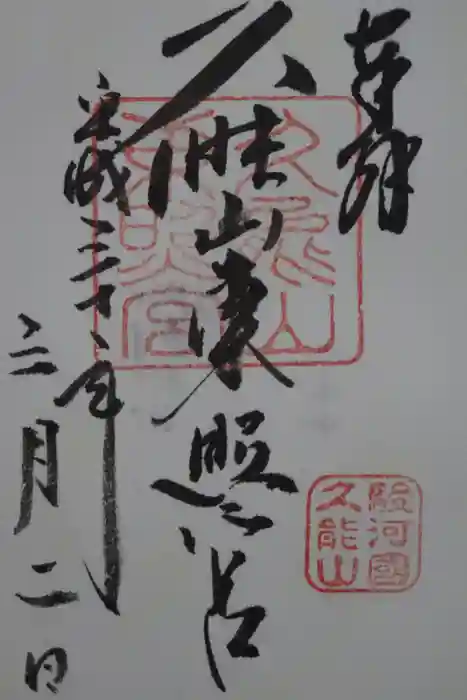 奉拝
久能山東照宮
平成三十一年
二月二日
久能山東照宮
駿河國
久能山